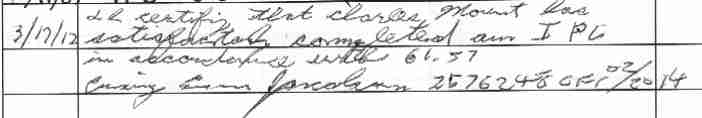 I certify that Charles Mount has
3/17/12 satisfactorily completed an IPC
in accordance with 61.57
2576248 CFI 02/2014